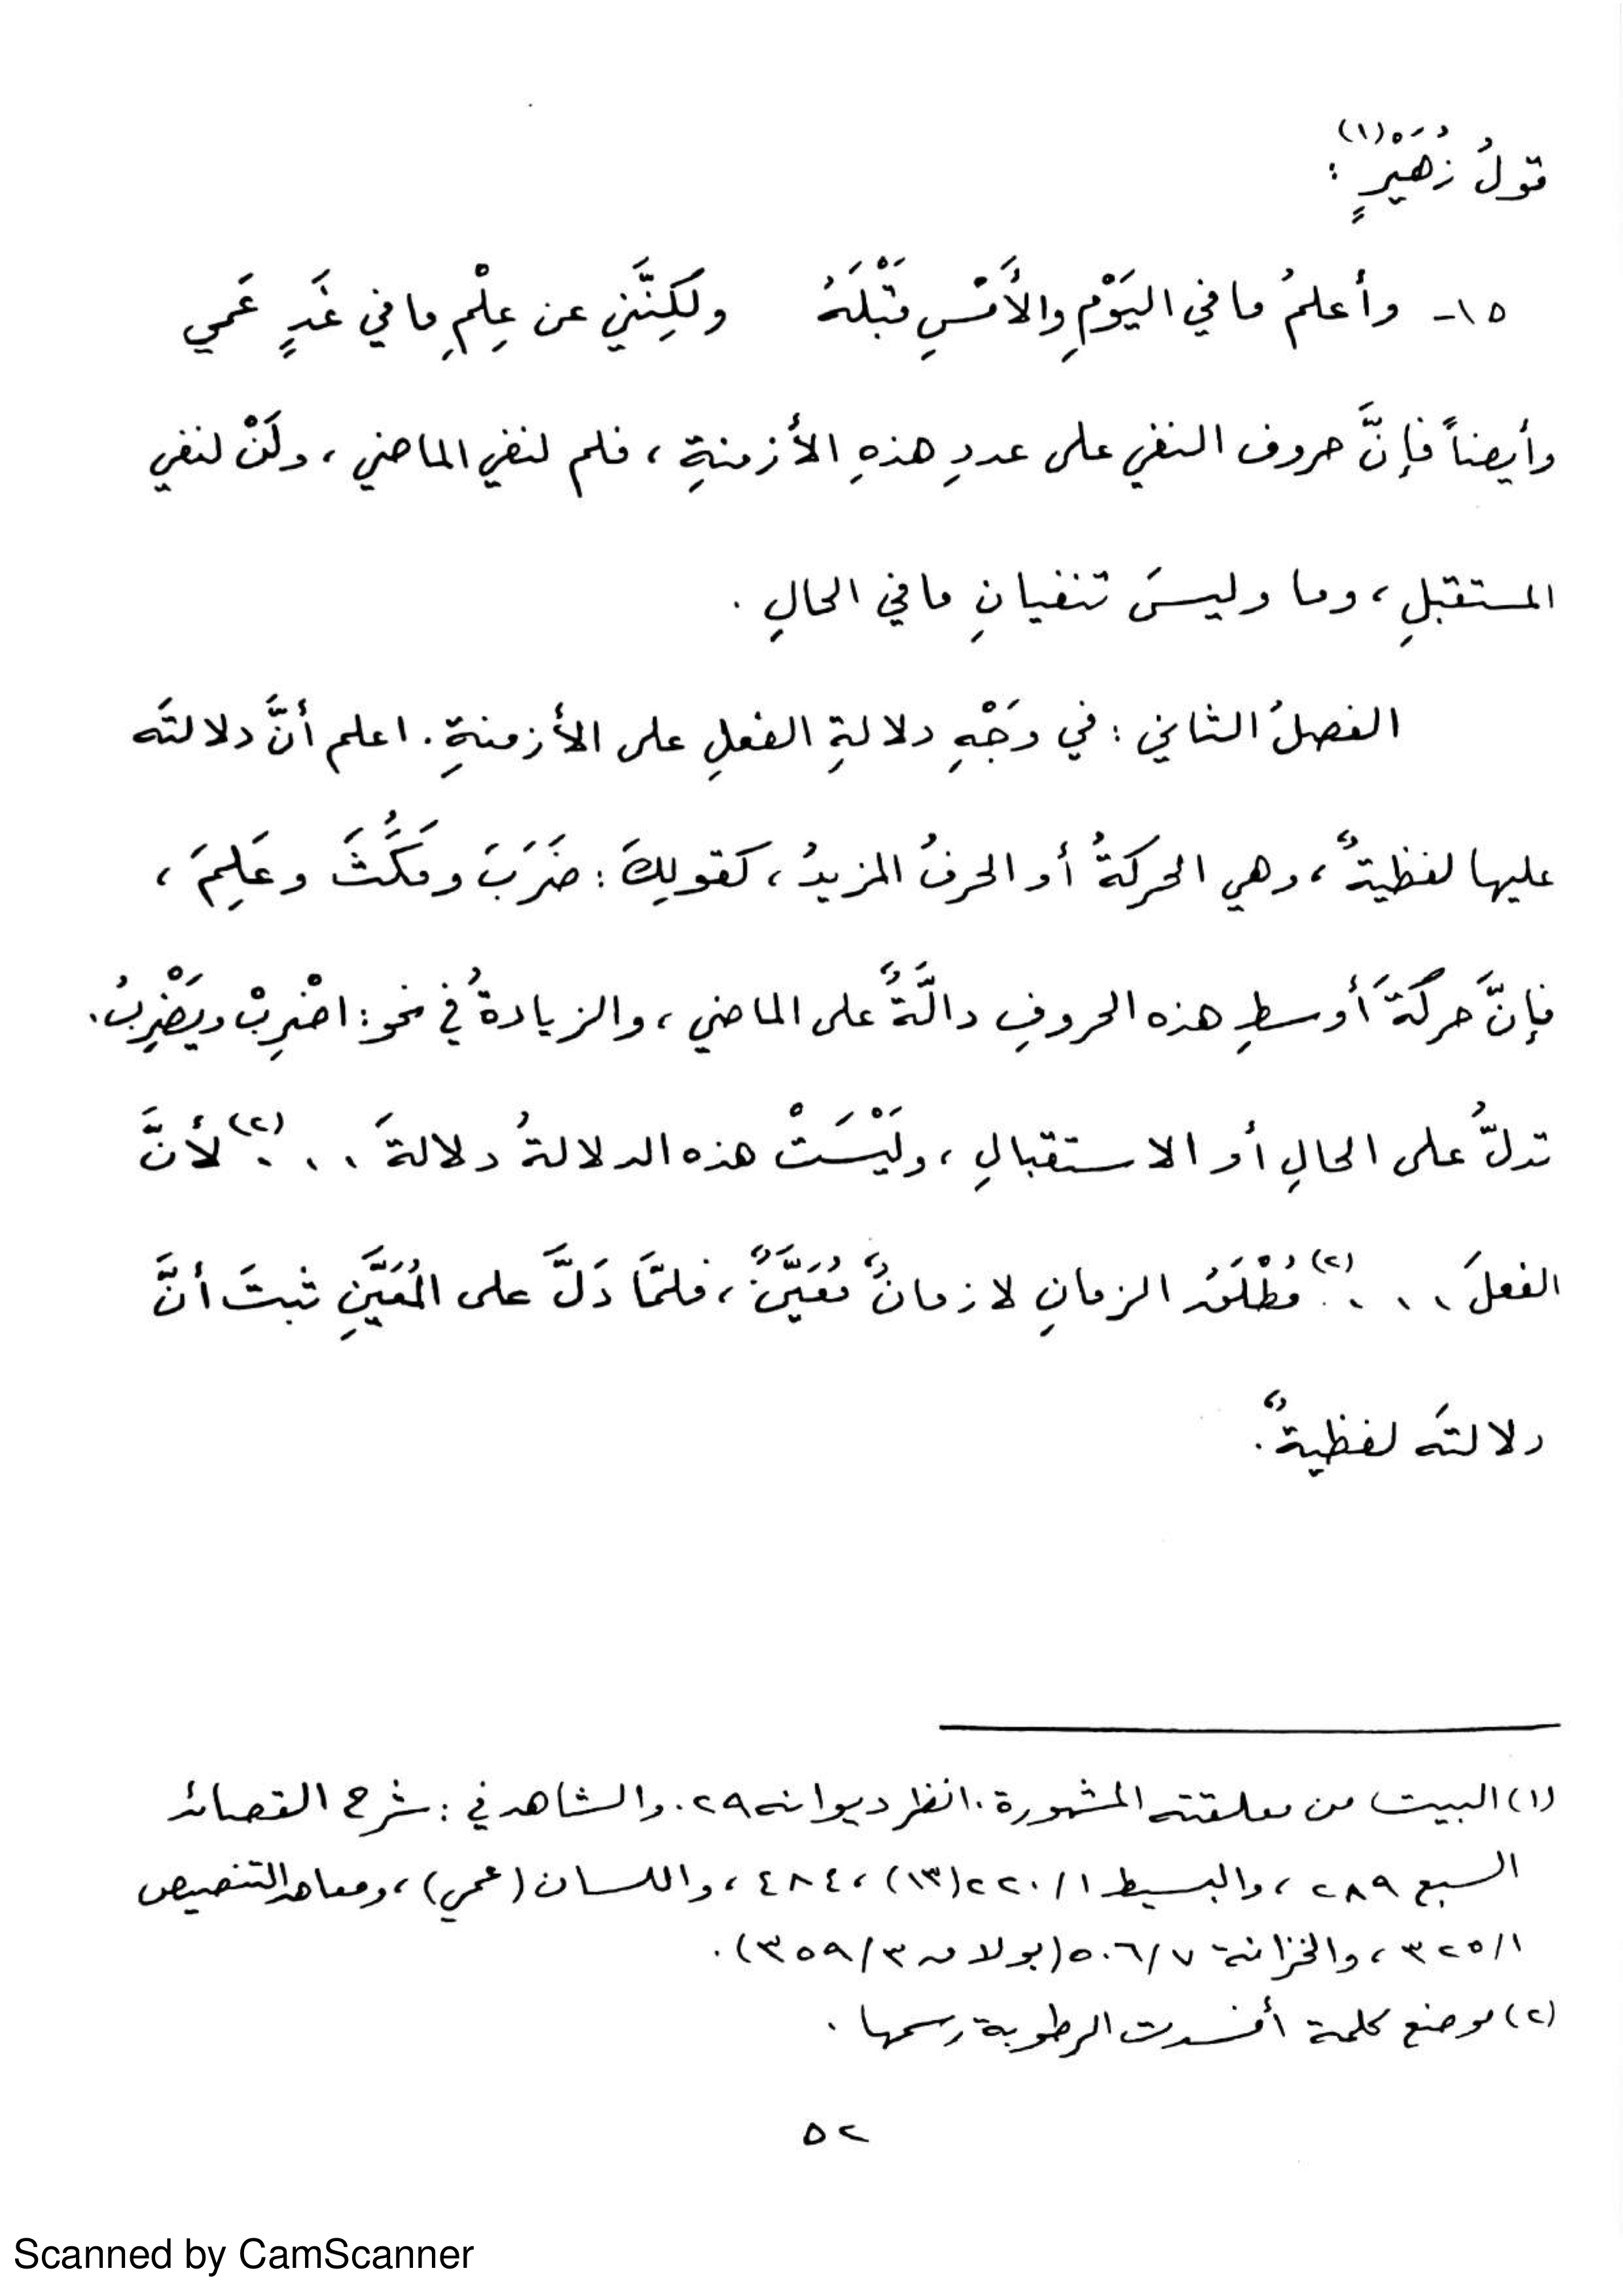 قولُ زُهَيْرٍ (١) :
١٥- وأعلمُ ما في اليَوْمِ والأَمْسِ قَبْلَهُ ولَكِنَّني عن عِلْمِ ما في غَدٍ عَمي
وأيضاً فإنَّ حروف النفي على عددِ هذهِ الأزمنةِ ، فلم لنفي الماضي ، ولَنْ لنفي
المستقبلِ ، وما وليسَ تنفيانِ ما في الحالِ .
الفصلُ الثاني : في وَجْهِ دلالةِ الفعلِ على الأزمنةِ . اعلم أنَّ دلالتَه
عليها لفظيةٌ ، وهي الحركةُ أو الحرفُ المزيدُ ، كقولِكَ : ضَرَبَ ومَكُثَ وعَلِمَ ،
فإنَّ حركَةَ أوسطِ هذه الحروفِ دالَّةٌ على الماضي ، والزيادةُ في نحو : اضْرِبْ ويَضْرِبُ .
تدلُّ على الحالِ أو الاستقبالِ ، ولَيْسَتْ هذه الدلالةُ دلالةَ . . . (٢) لأنَّ
الفعلَ . . . (٢) مُطْلَقُ الزمانِ لا زمانٌ مُعَيَّنٌ ، فلمَّا دَلَّ على المُعَيَّنِ ثبتَ أنَّ
دلالتَه لفظيةٌ .
(١) البيت من معلقته المشهورة . انظر ديوانه ٢٩ . والشاهد في : شرح القصائد
السبع ٢٨٩ ، والبسيط ١/ ٢٢٠ (١٣) ، ٤٨٤ ، واللسان (عمي) ، ومعاهد التنصيص
١/ ٣٢٥ ، والخزانة ٧/ ٥٠٦ (بولاق ٣/ ٣٥٩) .
(٢) موضع كلمة أفسدت الرطوبة رسمها .
٥٢
Scanned by CamScanner